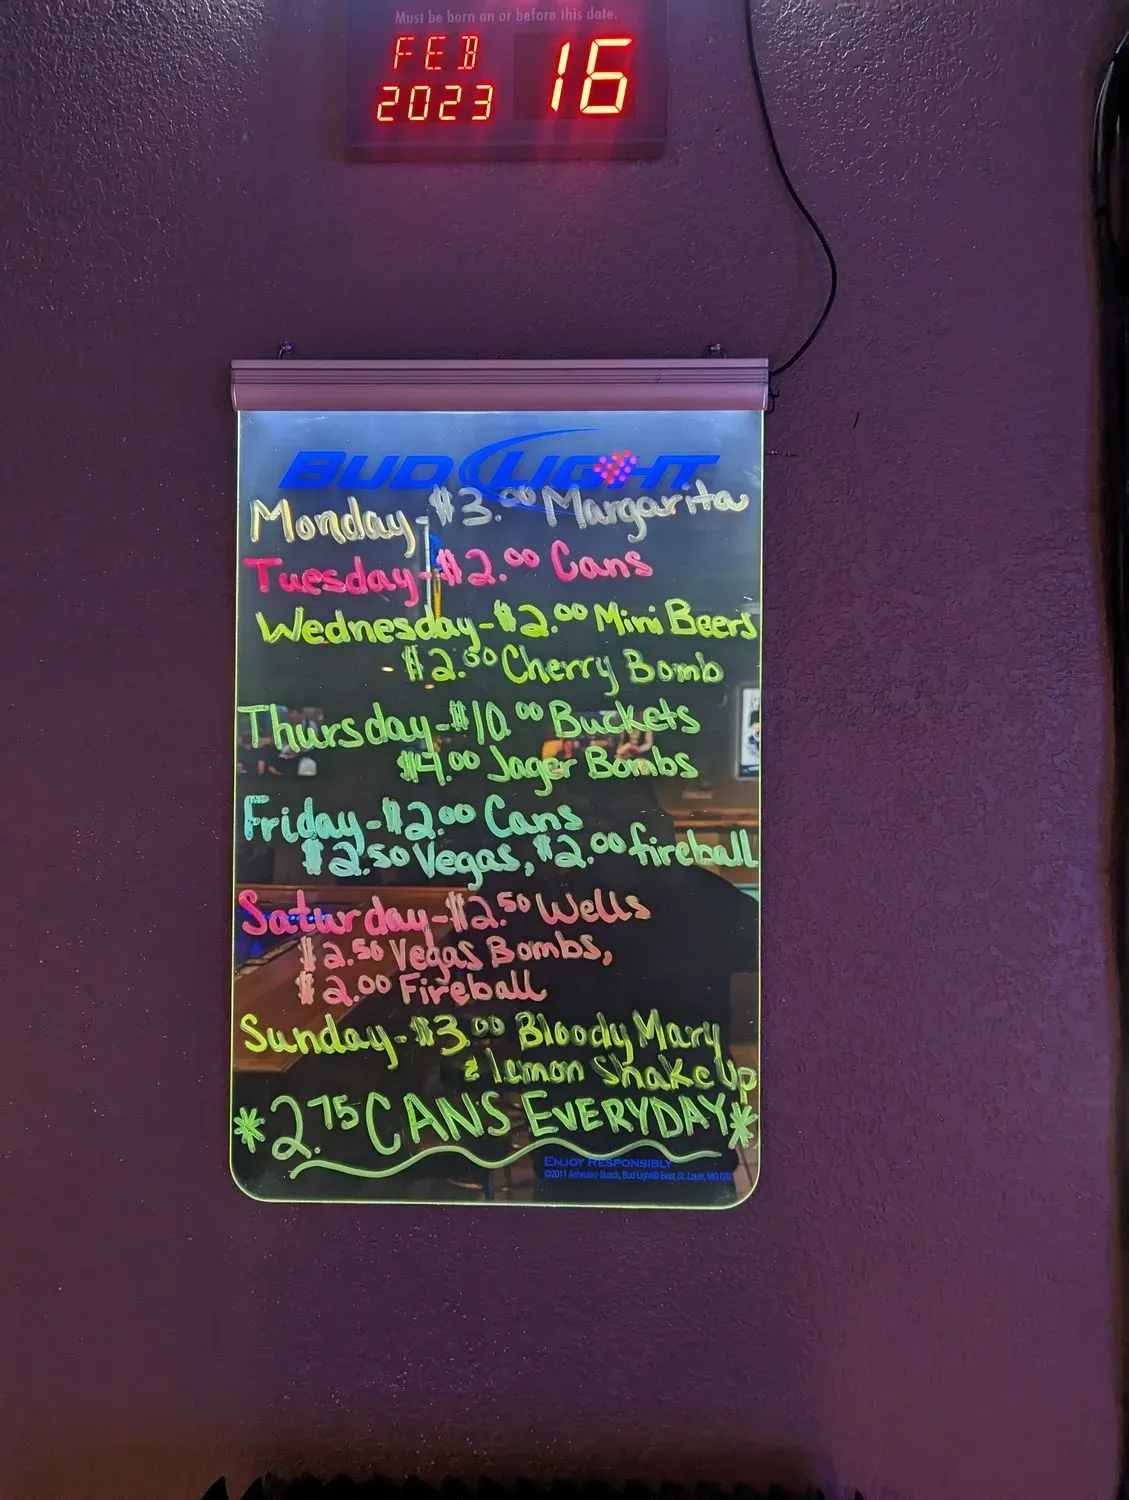 Must be born on or before this date.
FEB 16
2023
BUD LIGHT
Monday-$3.00 Margarita
Tuesday-$2.00 Cans
Wednesday-$2.00 Mini Beers
$2.00 Cherry Bomb
Thursday-$10.00 Buckets
$4.00 Jager Bombs
Friday-$2.00 Cans
$2.50 Vegas, $2.00 fireball
Saturday-$2.50 Wells
$2.50 Vegas Bombs,
$2.00 Fireball
Sunday-$3.00 Bloody Mary
& lemon Shake Up
*2.75 CANS EVERYDAY*
ENJOY RESPONSIBLY
©2011 Anheuser-Busch, Bud Light® Beer, St. Louis, MO